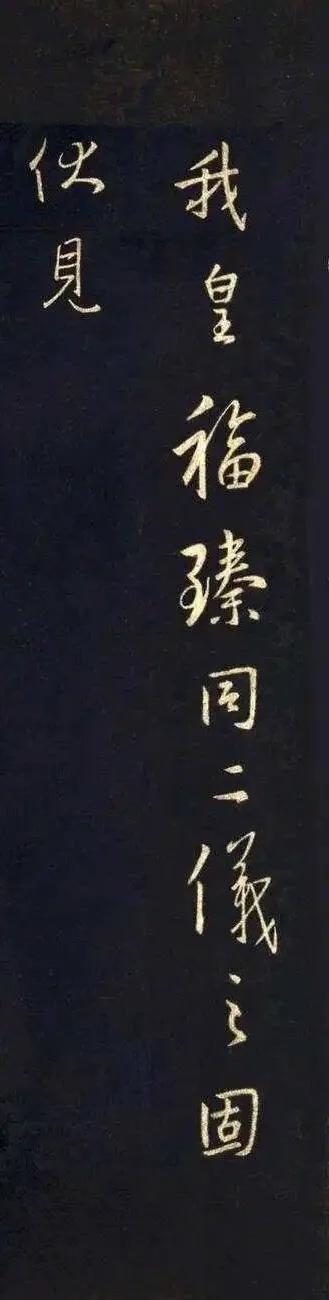 我皇福臻同二儀之固
伏見